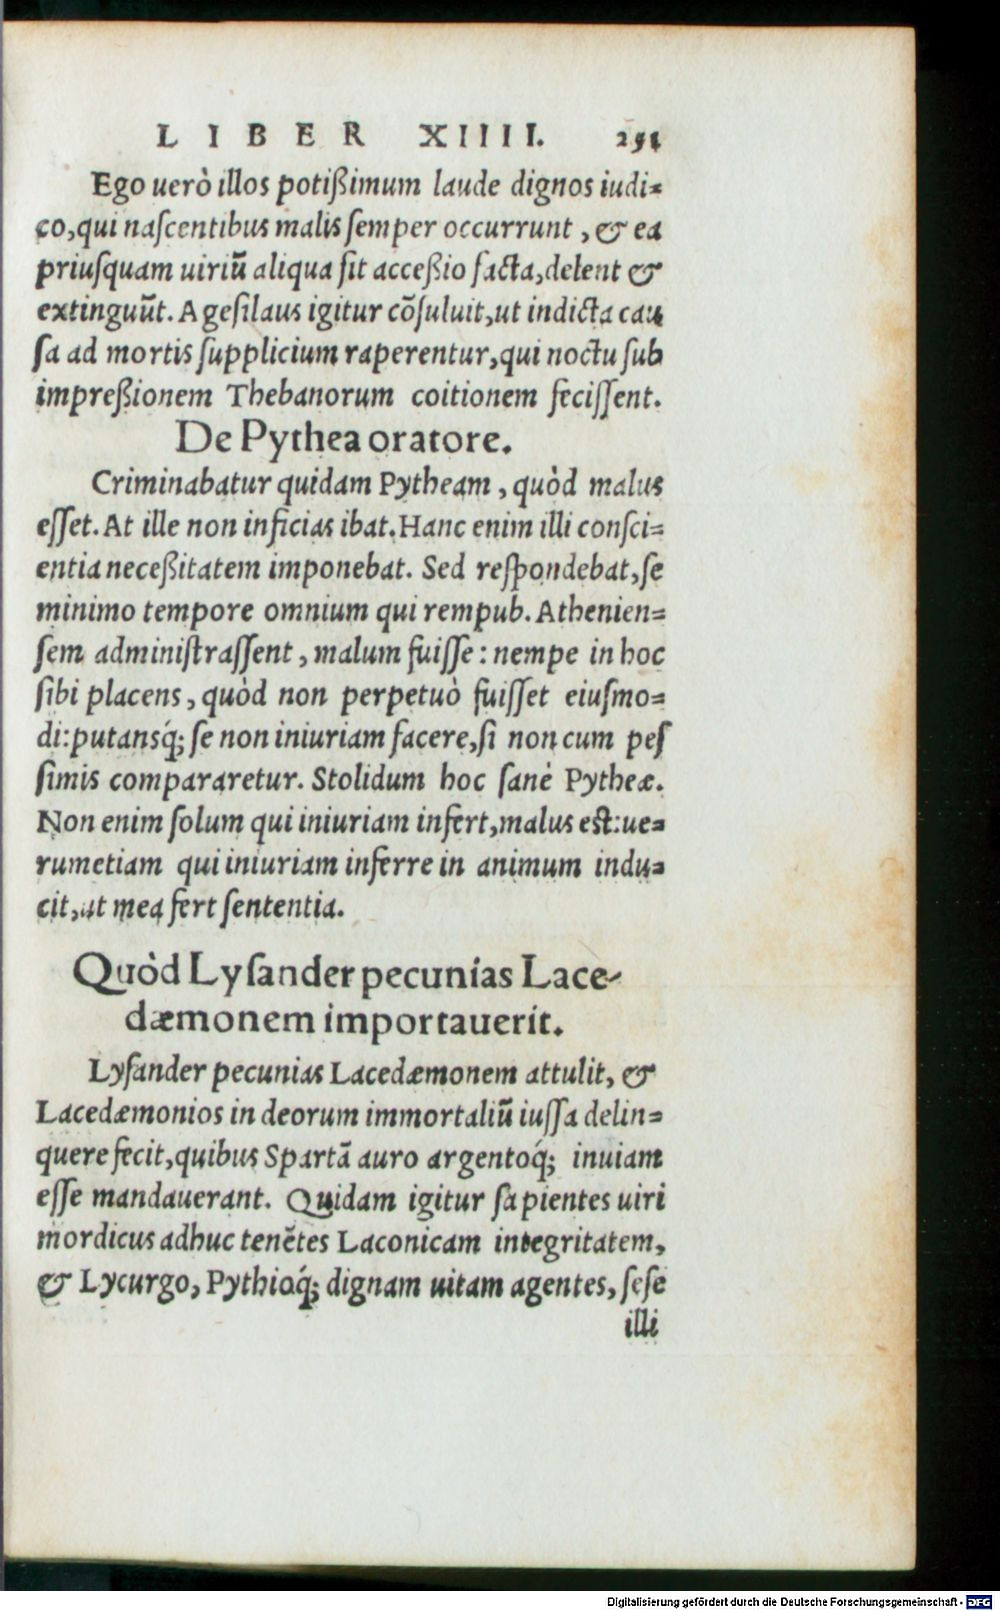 LIBER XIIII. 251
Ego uerò illos potißimum laude dignos iudi=
co, qui naſcentibus malis ſemper occurrunt, & ea
priuſquam uiriũ aliqua ſit acceßio facta, delent &
extinguũt. Ageſilaus igitur cõſuluit, ut indicta cau
ſa ad mortis ſupplicium raperentur, qui noctu ſub
impreßionem Thebanorum coitionem feciſſent.
De Pythea oratore.
Criminabatur quidam Pytheam, quòd malus
eſſet. At ille non inficias ibat. Hanc enim illi conſci=
entia neceßitatem imponebat. Sed reſpondebat, ſe
minimo tempore omnium qui rempub. Athenien=
ſem adminiſtraſſent, malum fuiſſe: nempe in hoc
ſibi placens, quòd non perpetuò fuiſſet eiuſmo=
di: putansq́; ſe non iniuriam facere, ſi non cum peſ
ſimis compararetur. Stolidum hoc ſanè Pytheæ.
Non enim ſolum qui iniuriam infert, malus eſt: ue=
rumetiam qui iniuriam inferre in animum indu=
cit, ut mea fert ſententia.
Quòd Lyſander pecunias Lace-
dæmonem importauerit.
Lyſander pecunias Lacedæmonem attulit, &
Lacedæmonios in deorum immortaliũ iuſſa delin=
quere fecit, quibus Spartã auro argentoq́; inuiam
eſſe mandauerant. Quidam igitur ſapientes uiri
mordicus adhuc tenẽtes Laconicam integritatem,
& Lycurgo, Pythioq́; dignam uitam agentes, ſeſe
illi
Digitalisierung gefördert durch die Deutsche Forschungsgemeinschaft - DFG